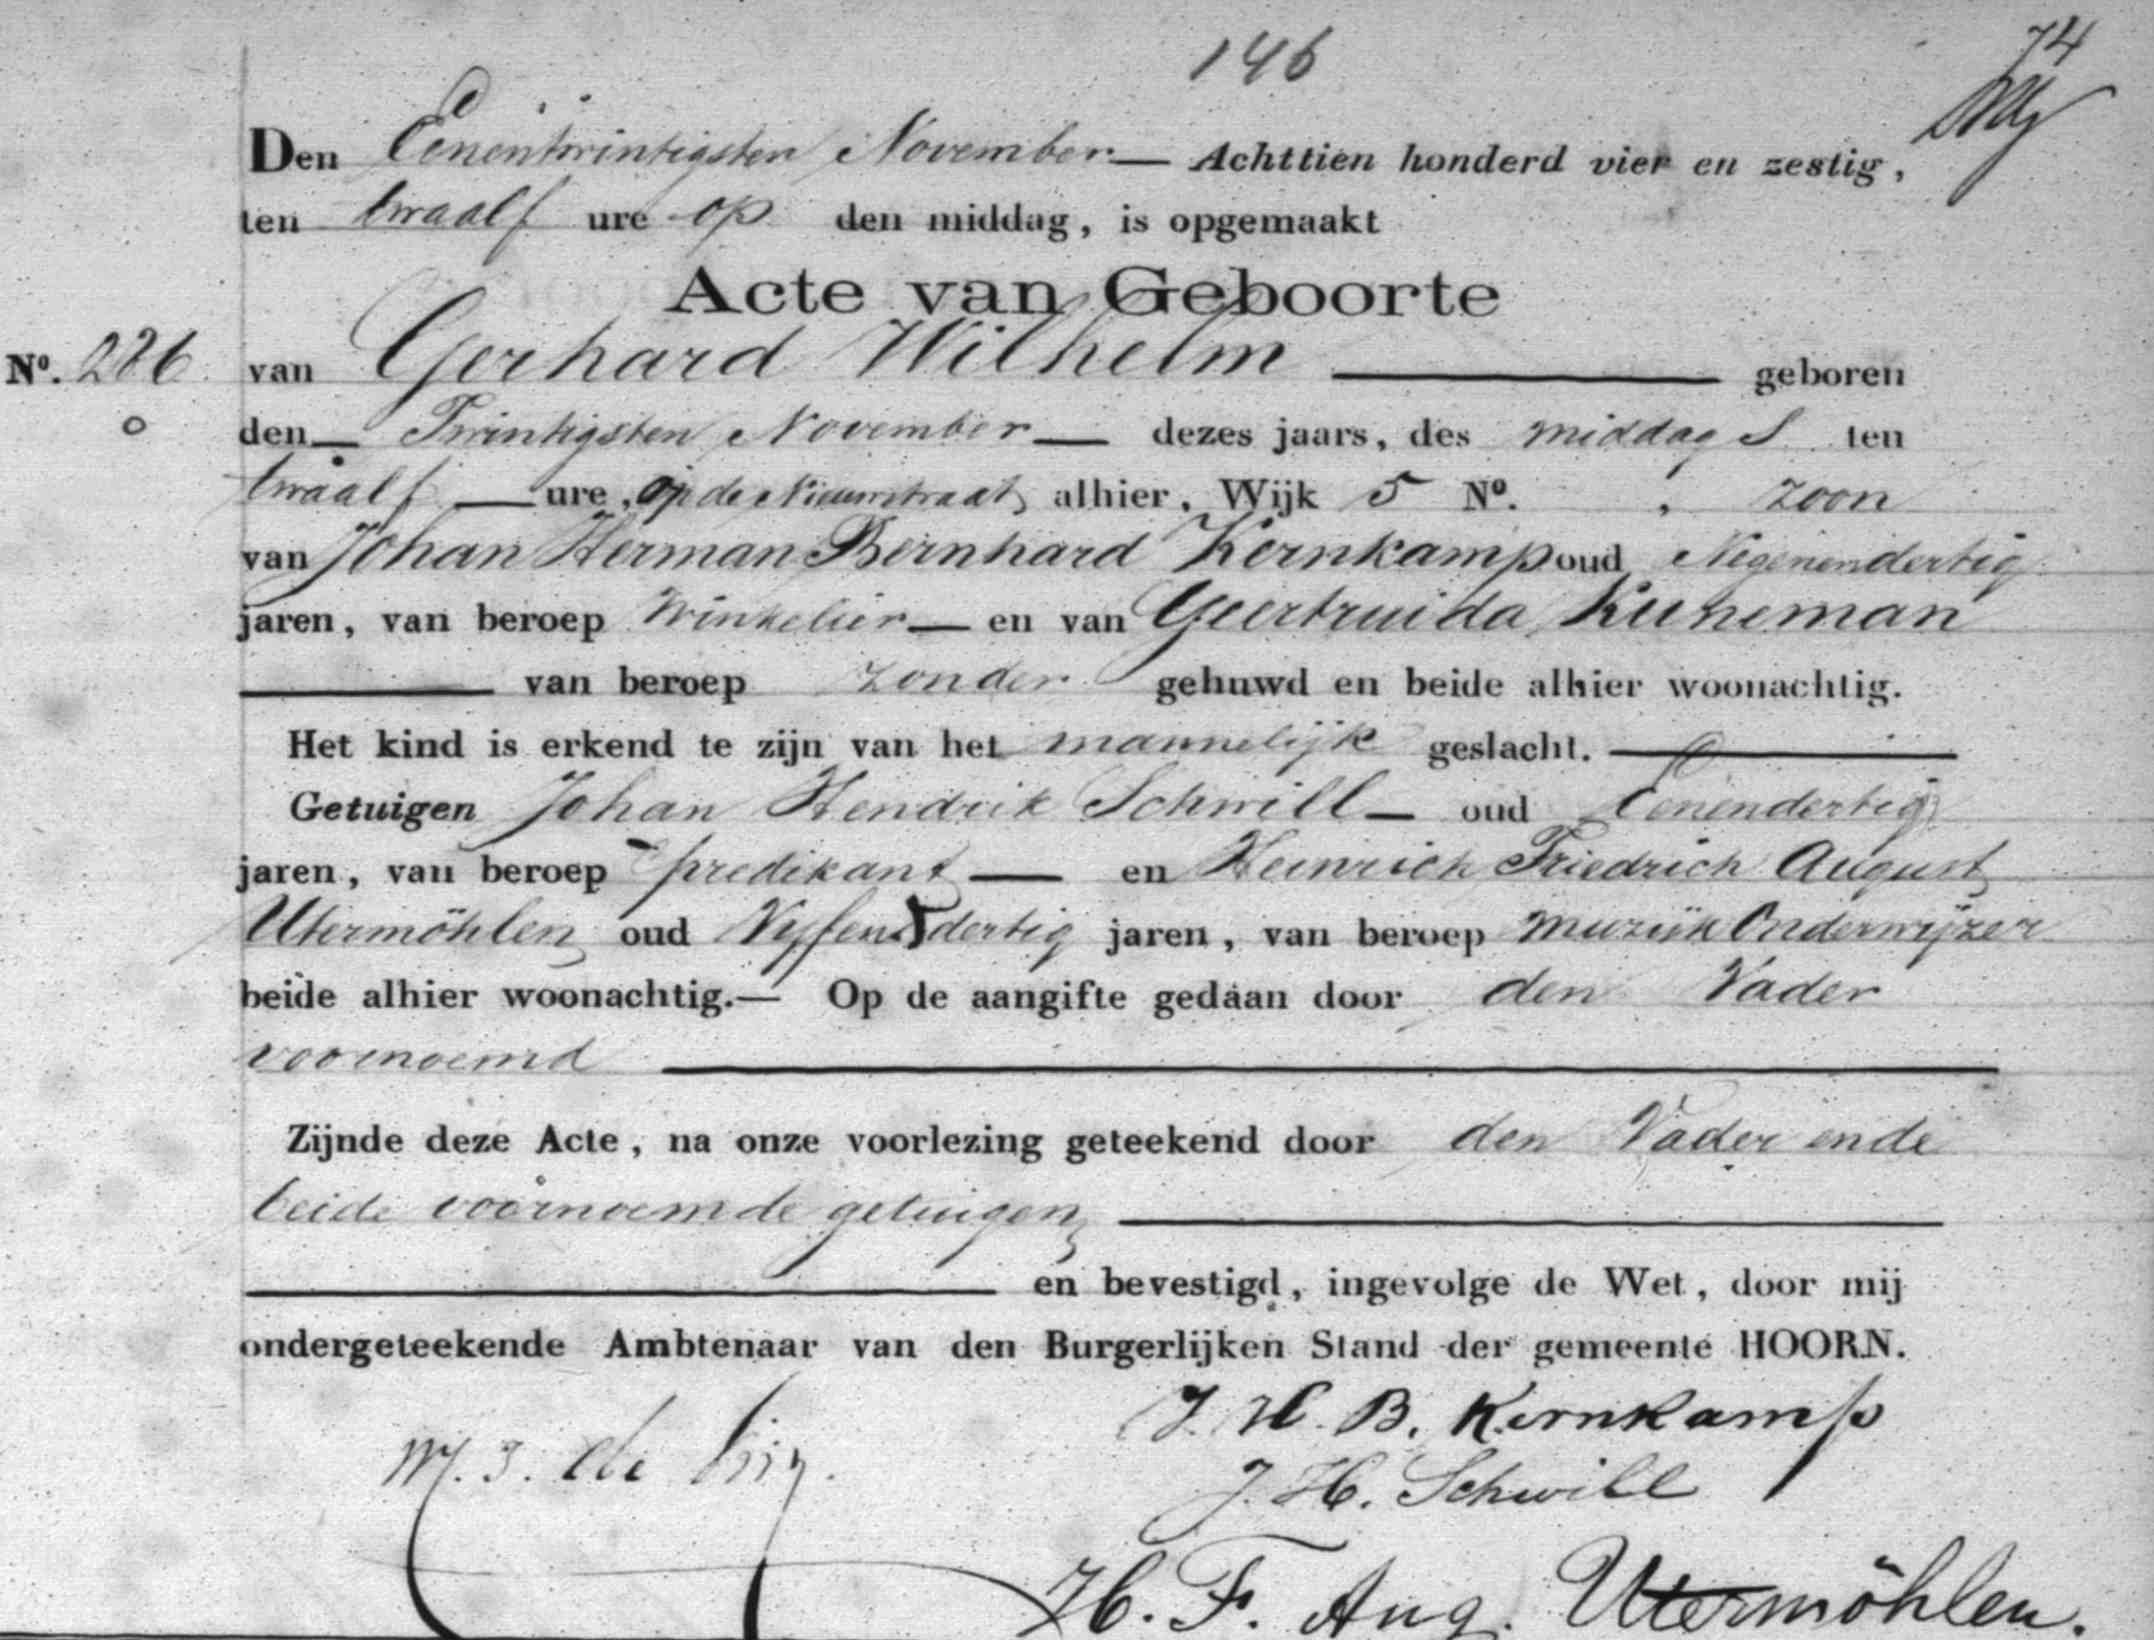 146
74
Den Eenentwintigsten November — Achttien honderd vier en zestig,
ten twaalf ure op den middag, is opgemaakt
Acte van Geboorte
Nº. 286 van Gerhard Wilhelm — geboren
den — Twintigsten November — dezes jaars, des middags ten
twaalf — ure, op de Nieuwstraat alhier, Wijk 5 Nº. , zoon
van Johan Herman Bernhard Kernkamp oud Negenendertig
jaren, van beroep Winkelier — en van Geertruida Kuneman
— van beroep zonder gehuwd en beide alhier woonachtig.
Het kind is erkend te zijn van het mannelijk geslacht. —
Getuigen Johan Hendrik Schwill — oud Eenendertig
jaren, van beroep predikant — en Heinrich Friedrich August
Utermöhlen oud Vijfendertig jaren, van beroep muzijk Onderwijzer
beide alhier woonachtig. — Op de aangifte gedaan door den Vader
voornoemd —
Zijnde deze Acte, na onze voorlezing geteekend door den Vader en de
beide voornoemde getuigen —
— en bevestigd, ingevolge de Wet, door mij
ondergeteekende Ambtenaar van den Burgerlijken Stand der gemeente HOORN.
J. H. B. Kernkamp
J. H. Schwill
H. F. Aug. Utermöhlen.